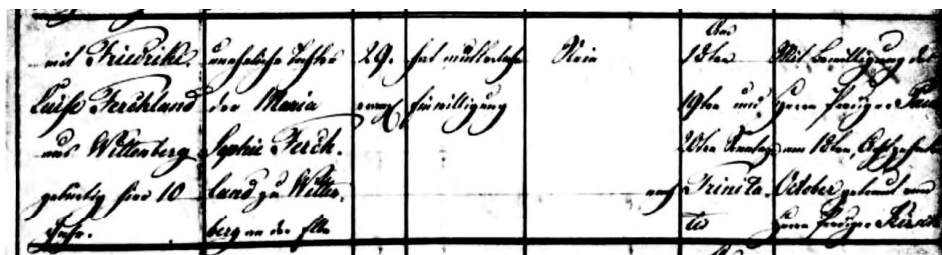 mit Friedrike
Luise Ferchland
aus Wittenberg
gebürtig hier 10
Jahr.
uneheliche Tochter
der Maria
Sophie Ferch-
land zu Witten-
berg an der Elbe
29.
hat mütterliche
Einwilligung
Nein
Am
18ten
19ten und
20ten Sonntage
nach Trinita-
tis
Mit Bewilligung des
Herrn Prediger
am 18ten,
October getraut vom
Herrn Prediger